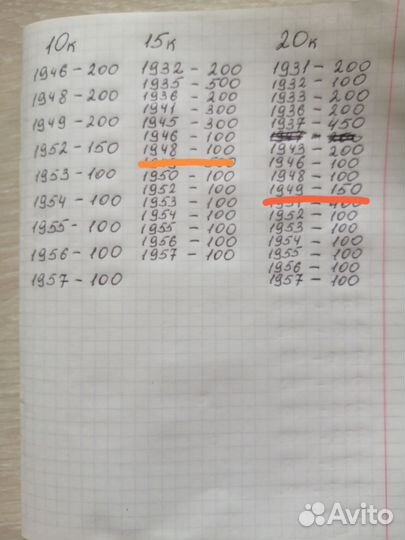 10к
1946-200
1948-200
1949-200
1952-150
1953-100
1954-100
1955-100
1956-100
1957-100
15к
1932-200
1935-500
1936-200
1941-300
1945-300
1946-100
1948-100
1950-100
1952-100
1953-100
1954-100
1955-100
1956-100
1957-100
20к
1931-200
1932-100
1933-200
1936-200
1937-450
1943-200
1946-100
1948-100
1949-150
1951-400
1952-100
1953-100
1954-100
1955-100
1956-100
1957-100
Avito